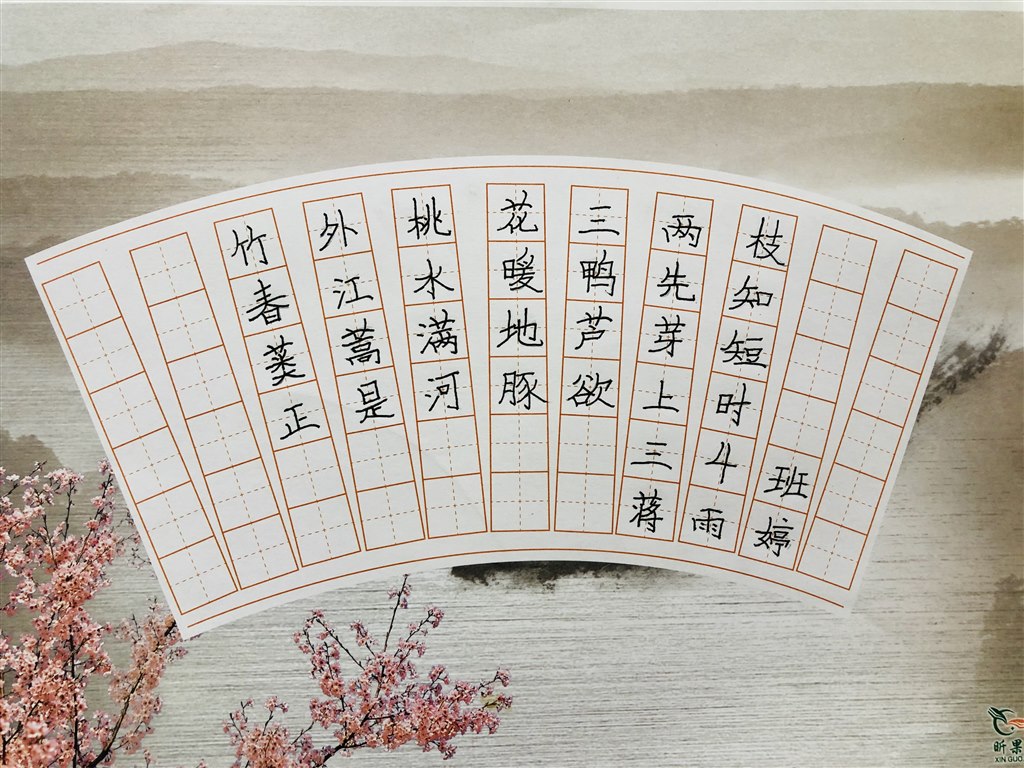 竹外桃花三两枝
春江水暖鸭先知
蒌蒿满地芦芽短
正是河豚欲上时
三4班
蒋雨婷
昕果
XIN GUO